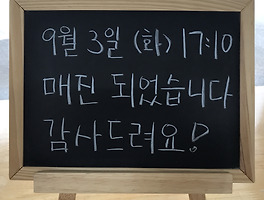 9월 3일 (화) 17:10
매진 되었습니다
감사드려요!